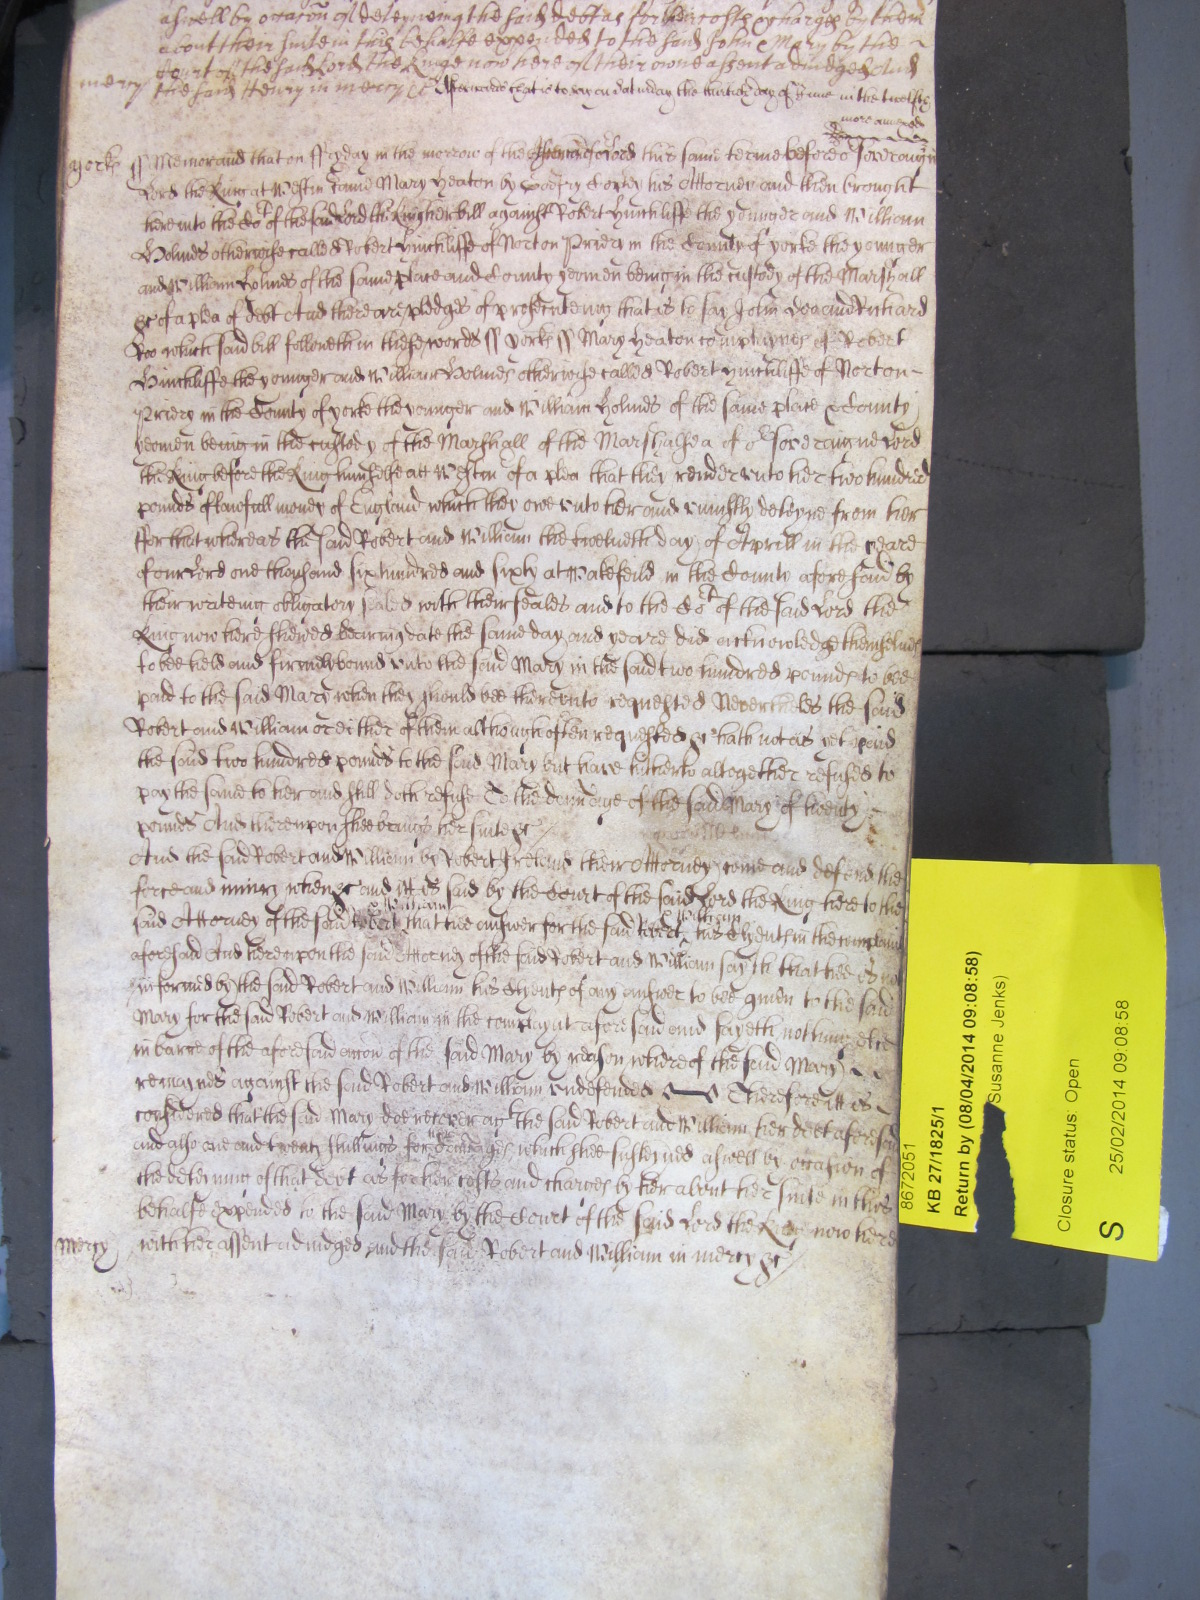 aswell by occacon of deteyneing the said debt as for their costs & charges by them
about their suite in this behalfe expended to the said John & Mary by the
Court of the said Lord the Kinge now here of their owne assent adiudged And
mercy the said Henry in mercy &c Afterwards that is to say on Saturday the day of June in the twelfth
more amerced
yorke ss Memorand that on ffryday in the morrow of the Ascencion of or Lord this same terme before or Soveraigne
Lord the King at Westm came Mary Heaton by Godfry Copley his Attorney and then brought
here into the Cort of the said Lord the King her bill against Robert Hinchliffe the younger and William
Holmes otherwise called Robert Hinchliffe of Norton Priery in the County of yorke the younger
and William Holmes of the same place and County yeomen being in the custody of the Marshall
&c of a plea of debt And there are pledges of prosecuteing that is to say John Doe and Richard
Roo which said bill followeth in these words ss yorke ss Mary Heaton complaynes of Robert
Hinchliffe the younger and William Holmes otherwise called Robert Hinchliffe of Norton
Priery in the County of yorke the younger and William Holmes of the same place & County
yeomen being in the custody of the Marshall of the Marshalsea of or Soveraigne Lord
the King before the King himselfe att Westm of a plea that they render unto her two hundred
pounds of lawfull money of England which they owe unto her and uniustly deteyne from her
ffor that whereas the said Robert and William the twelueth day of Aprill in the yeare
of our Lord one thousand six hundred and sixty at Wakefeild in the County aforesaid by
their writeing obligatory sealed with their seales and to the Cort of the said Lord the
King now here shewed beareing date the same day and yeare did acknowledge themselues
to bee held and firmely bound unto the said Mary in the said two hundred pounds to bee
paid to the said Mary when they should bee thereunto requested Neverthelesse the said
Robert and William or either of them although often requested &c hath not as yet paid
the said two hundred pounds to the said Mary but have hitherto altogether refused to
pay the same to her and still doth refuse To the damage of the said Mary of twenty
pounds And thereupon shee brings her suite &c
And the said Robert and William by Robert Ireland their Attorney come and defend the
force and iniury when &c and itt is said by the Court of the said Lord the King here to the
& William & William
said Attorney of the said Robert that hee answer for the said Robert his Clyents in the complaint
aforesaid And hereupon the said Attorney of the said Robert and William sayth that hee is not
informed by the said Robert and William his Clyents of any answer to bee given to the said
Mary for the said Robert and William in the complaynt aforesaid and sayeth nothing else
in barre of the aforesaid accon of the said Mary by reason whereof the said Mary
remaynes against the said Robert and William undefended Therefore itt is
considered that the said Mary doe recover agt the said Robert and William her debt aforesaid
and also one and twenty shillings for damages which shee susteyned aswell by occasion of
the deteyning of that debt as for her costs and charges by her about her suite in this
behalfe expended to the said Mary by the Court of the said Lord the King now here
Mercy with her assent adiudged and the said Robert and William in mercy &c
8672051
KB 27/1825/1
Return by (08/04/2014 09:08:58)
Susanne Jenks)
Closure status: Open
S
25/02/2014 09:08:58